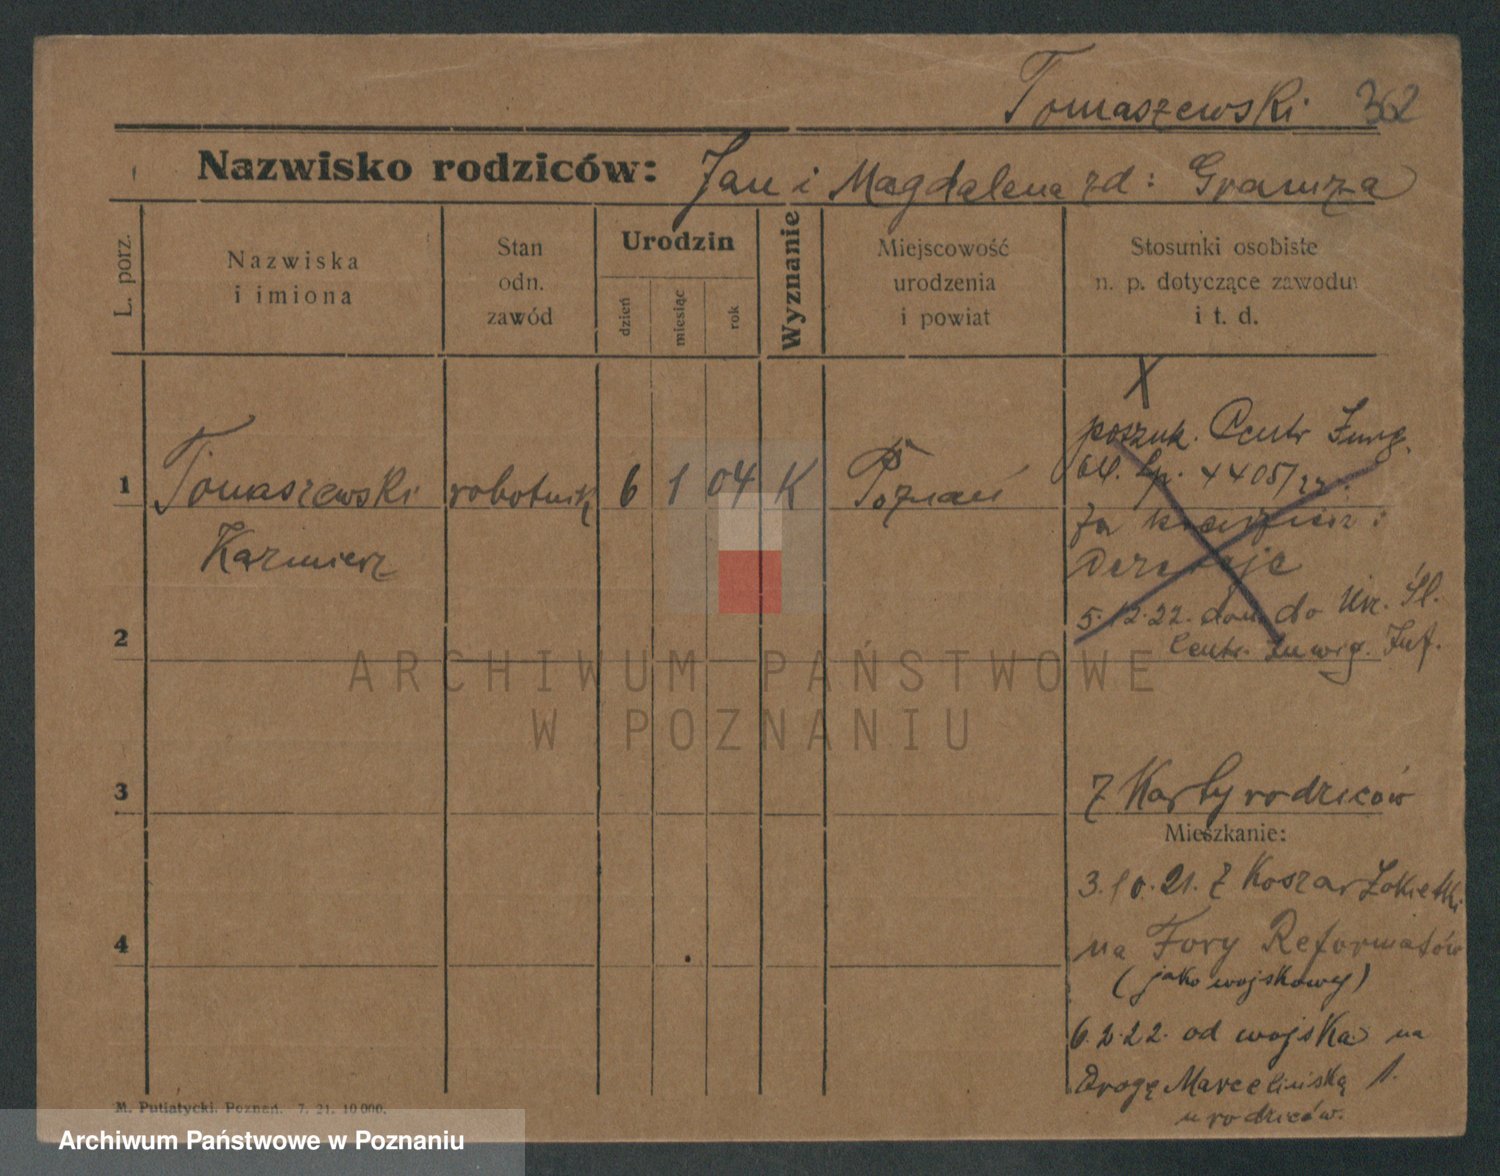 Tomaszewski 362
Nazwisko rodziców: Jan i Magdalena zd: Gramza
L. porz.
Nazwiska
i imiona
Stan
odn.
zawód
Urodzin
dzień
miesiąc
rok
Wyznanie
Miejscowość
urodzenia
i powiat
Stosunki osobiste
n. p. dotyczące zawodu
i t. d.
X
poszuk. Centr
4405/22
1 Tomaszewski robotnik 6 1 04 K Poznań
za
Kazimierz
5.12.22. do Śl.
2
Centr.
ARCHIWUM PAŃSTWOWE
W POZNANIU
z Karty rodziców
3
Mieszkanie:
3.10.21. z Koszar
4
na Fory Reformatów
(jako wojskowy)
6.2.22. od wojska na
Drogę Marcelińską 1.
u rodziców.
M. Putiatycki, Poznań. 7. 21. 10 000.
Archiwum Państwowe w Poznaniu